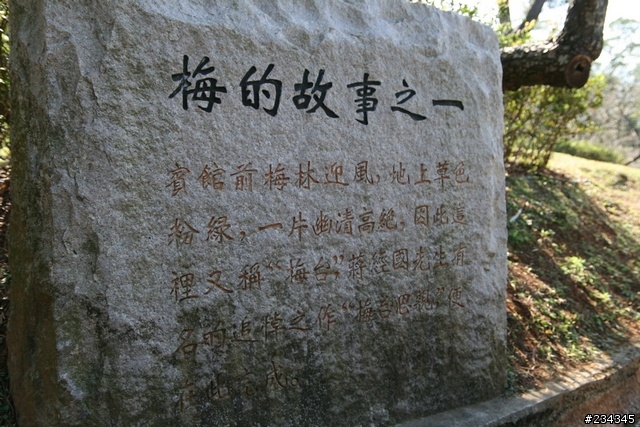 梅的故事之一
賓館前梅林迎風，地上草色
粉綠，一片幽清高絕，因此這
裡又稱“梅台”，蔣經國先生有
名的追悼之作“梅台思親”便
在此完成。
#234345